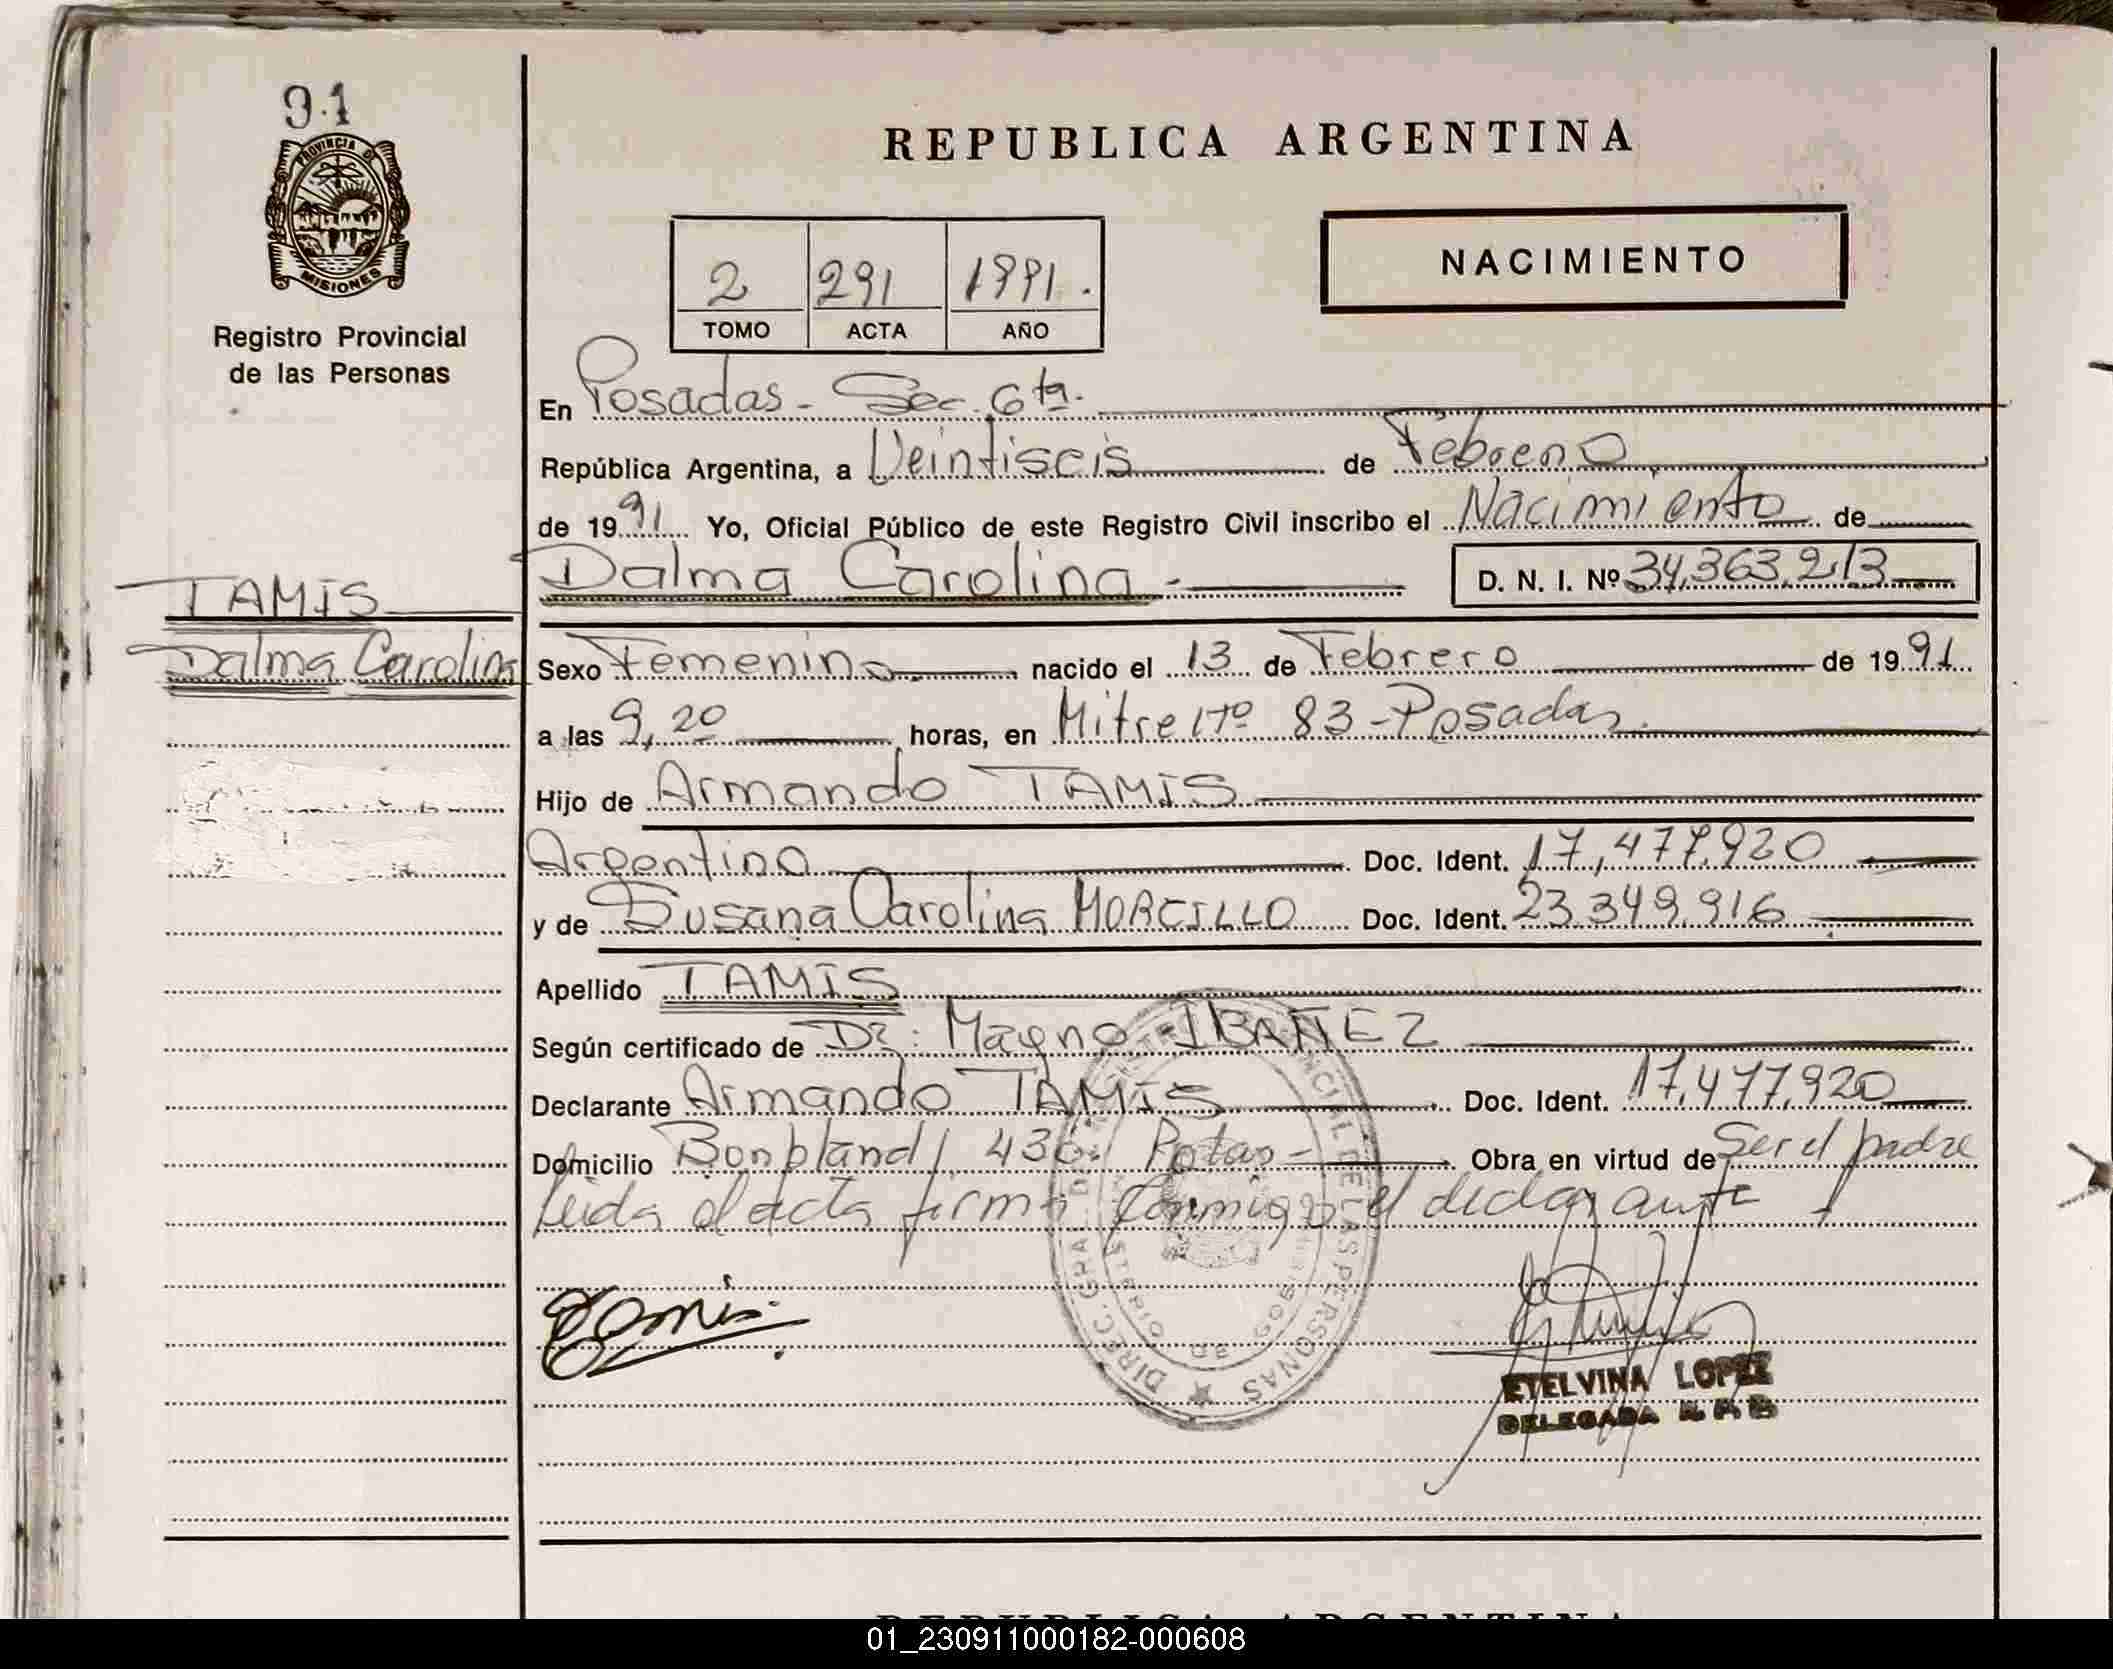 91
PROVINCIA DE
MISIONES
Registro Provincial
de las Personas
REPUBLICA ARGENTINA
NACIMIENTO
2 291 1991.
TOMO ACTA AÑO
En Posadas - Sec. 6ta.
República Argentina, a Veintiseis de Febrero
de 1991 Yo, Oficial Público de este Registro Civil inscribo el Nacimiento de
Dalma Carolina.- D. N. I. Nº 34.363.213
TAMIS
Dalma Carolina
Sexo Femenino nacido el 13 de Febrero de 1991
a las 9,20 horas, en Mitre 83 - Posadas.
Hijo de Armando TAMIS
Argentino Doc. Ident. 17,477,920
y de Susana Carolina MORCILLO Doc. Ident. 23.349.916
Apellido TAMIS
Según certificado de Dr: Magno IBAÑEZ
Declarante Armando TAMIS Doc. Ident. 17.477.920
Domicilio Bonpland 430. Obra en virtud de Ser el padre
Leida el acta firma conmigo el declarante
DIREC. GRAL. DEL REGISTRO PROVINCIAL DE LAS PERSONAS
MINISTERIO DE GOBIERNO
Tamis.
ETELVINA LOPEZ
DELEGADA
REPUBLICA ARGENTINA
01_230911000182-000608